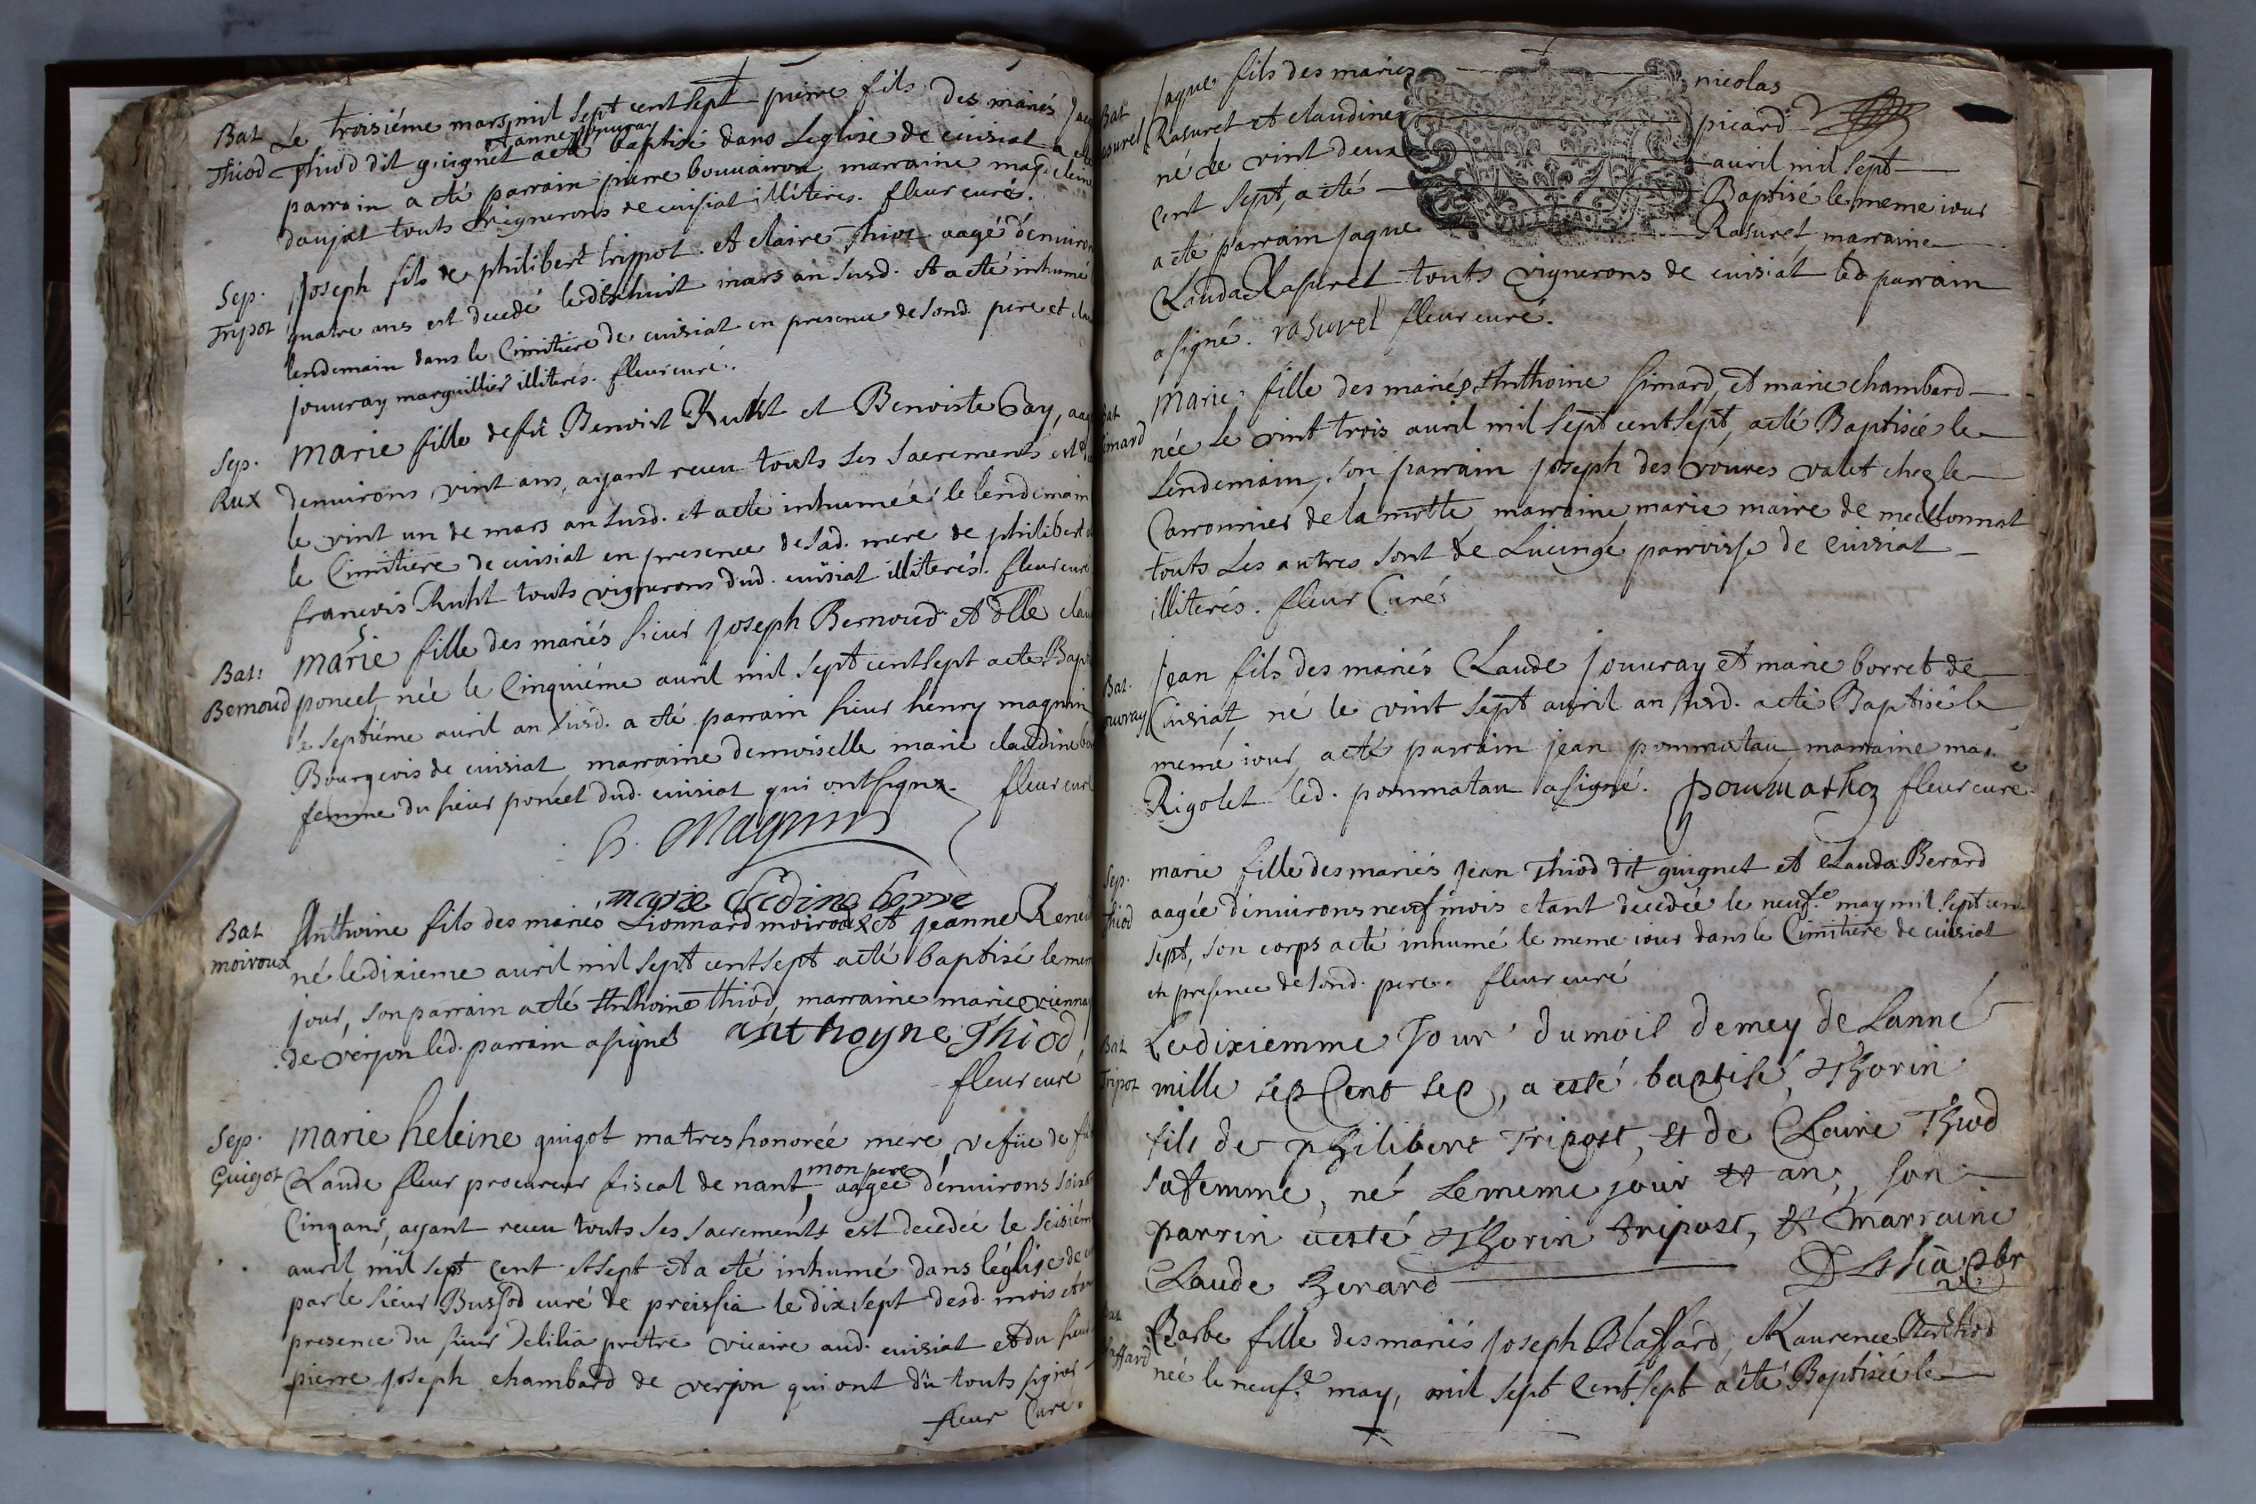 Bat
Thiod
Le troisiéme mars mil sept cent sept pierre fils des mariés
et anne jouuray
Thiod dit guignet acté baptisé dans Leglise de cuisiat
parrain acté parrain pierre bouuairon marraine
daujat touts vignerons de cuisiat illiteres. fleur curé.
Sep.
Tripot
Joseph fils de philibert trippot et claire Thiot aagé d'enuiron
quatre ans est decedé ledixhuit mars an susd. et a eté inhumé
lendemain dans le Cimitiere de cuisiat en presence de sond. pere et
jouuray marguillier illiterés. fleur curé.
Sep.
Rux
Marie fille de fû Benoist Ruht et Benoiste Gay,
denuirons vint ans, ayant receu touts ses sacrements est
le vint un de mars an susd. et acté inhumée le lendemain
le Cimitiere de cuisiat en presence de sad. mere de philibert
francois Ruht touts vignerons dud. cuisiat illiterés. fleur curé
Bat:
Bernoud
marie fille des mariés sieur Joseph Bernoud et dlle
poncet, née le Cinquiéme auril mil sept cent sept acté
le septiéme auril an susd. a eté parrain sieur henry magnin
Bourgeois de cuisiat marraine demoiselle marie claudine
femme du sieur poncet dud. cuisiat qui ont signez. fleur curé
h. Magnin
marie cledine borre
Bat
moiroux
Anthoine fils des mariés Lionnard moiroux et jeanne
né ledixieme auril mil sept cent sept acté baptisé le mem
jour, son parrain acté Anthoine Thiod, marraine marie
de verjon led. parrain a signé anthoyne Thiod,
fleur curé
Sep.
Guigot
Marie heleine guigot matres honorée mere, vefüe de
mon pere
Claude fleur procureur fiscal de nant, aagée d'enuirons
Cinq ans, ayant receu touts ses sacrements est decedée le seisiém
auril mil sept cent et sept et a eté inhumé dans léglise de
par le sieur Bussod curé de preissia le dixsept desd. mois et an
presence du sieur delilia prétre vicaire aud. cuisiat et du sieur
pierre joseph chambard de verjon qui ont dû touts signer
fleur Curé.
Bat
Jaque fils des mariés nicolas
Rasuret et claudine picard
né le vint deux auril mil sept
cent sept, acté Baptisé le meme iour
acté parrain jaque Rasuret marraine
Clauda Rasuret touts vignerons de cuisiat led parrain
a signé. rasurel fleur curé.
Marie fille des mariés Anthoine simard, et marie chambard
née le vint trois auril mil sept cent sept, acté Baptisée le
lendemain, son parrain joseph des voures valet chez le
Carronnier de la motte marraine marie maire de meillonnat
touts les autres sont de Lucinge parroisse de Cuisiat
illiterés. fleur Curé
Bat.
Jean fils des mariés Claude jouuray et marie borret de
Cuisiat, né le vint sept auril an susd. acté Baptisé le
meme iour, acté parrain jean pommatau marraine
Rigolet led. pommatau a signé. pommathoz fleur curé
Sep.
Thiod
marie fille des mariés jean Thiod dit guignet et Clauda Berard
aagée d'enuirons neuf mois etant decedée le neuf.e may mil sept cen
sept, son corps acté inhumé le meme iour dans le Cimitiere de cuisiat
en presence de sond. pere. fleur curé
Bat
Tripot
Le dixiemme Jour du mois de mey de Lanné
mille sep Cent sep, a esté baptisé, Thorin
fils de philibert Tripost, et de Claire Thiod
sa femme, né le meme jour et an, son
parrin a esté Thorin tripost, et marraine
Claude Berard Delilia pbr
Barbe fille des mariés joseph Blassard, et Laurence
née le neuf.e may, mil sept Cent sept acté Baptisée le